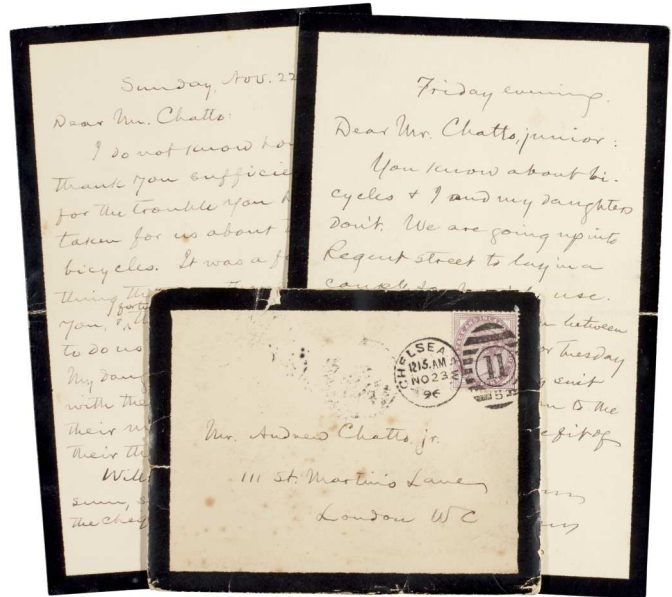 Sunday, Nov. 22
Dear Mr. Chatto:
I do not know
thank you
for the trouble you
taken for us about
bicycles. It was a
thing
you,
to do us
My
with the
their
their
Will
the
Friday evening.
Dear Mr. Chatto, junior:
You know about bi-
cycles & I and my daughters
don't. We are going up into
Regent street to lay in a
use.
between
or Tuesday
suit
to the
of
CHELSEA
12.15.AM
NO 23
96
11
Mr. Andrew Chatto, jr.
111 St. Martin's Lane
London WC